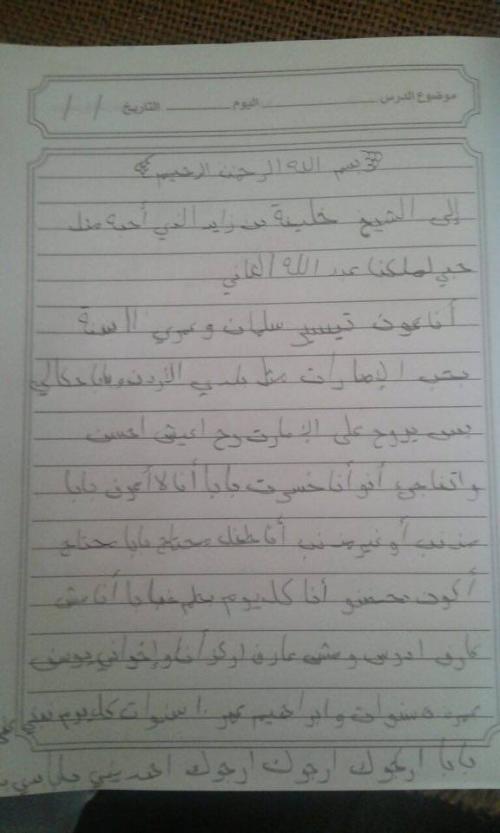 موضوع الدرس اليوم التاريخ / /
بسم الله الرحمن الرحيم
إلى الشيخ خليفة بن زايد الذي أحبه مثل
حبي لملكنا عبد الله الثاني
أنا عون تيسير سلمان وعمري السنة
بحب الإمارات مثل بلدي الأردن وبابا حكالي
بس يروح على الإمارت رح اعيش احسن
واتفاجئ أنو أنا خسرت بابا أنا لا أعرف بابا
مذنب أو غير مذنب أنا طفل محتاج بابا محتاج
أكون بحضنو أنا كل يوم بحلم فبابا أنا مش
عارف ادرس ومش عارف اركز أنا وإخواني يوسف
عمره سنوات وابراهيم عمر ١٠ سنوات كل يوم
بابا ارجوك ارجوك ارجوك